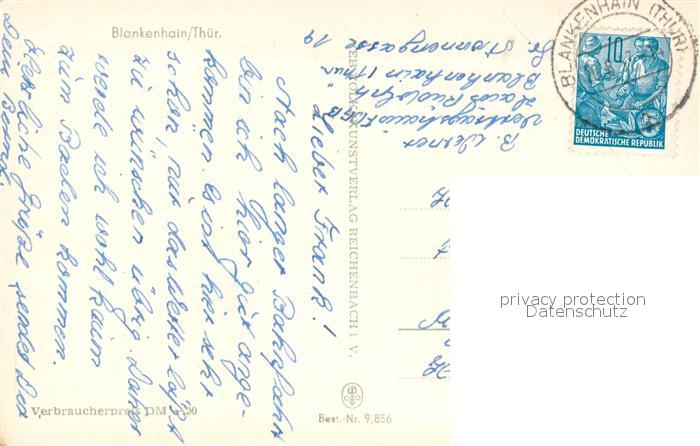 Blankenhain/Thür.
Lieber Frank!
Nach langer Bahnfahrt
bin ich hier gut ange-
kommen. Es ist hier sehr
schön, nur das Wetter läßt
zu wünschen übrig. Daher
werde ich wohl kaum
zum Baden kommen.
Herzliche Grüße sendet Dir
Dein Bernd.
Verbraucherpreis DM 0,20
KUNSTVERLAG REICHENBACH i. V.
Best.-Nr. 9/856
B. Werner
Vertragshaus FDGB
Rudolph
Blankenhain/Thür
19
BLANKENHAIN (THÜR)
10
DEUTSCHE
DEMOKRATISCHE REPUBLIK
privacy protection
Datenschutz